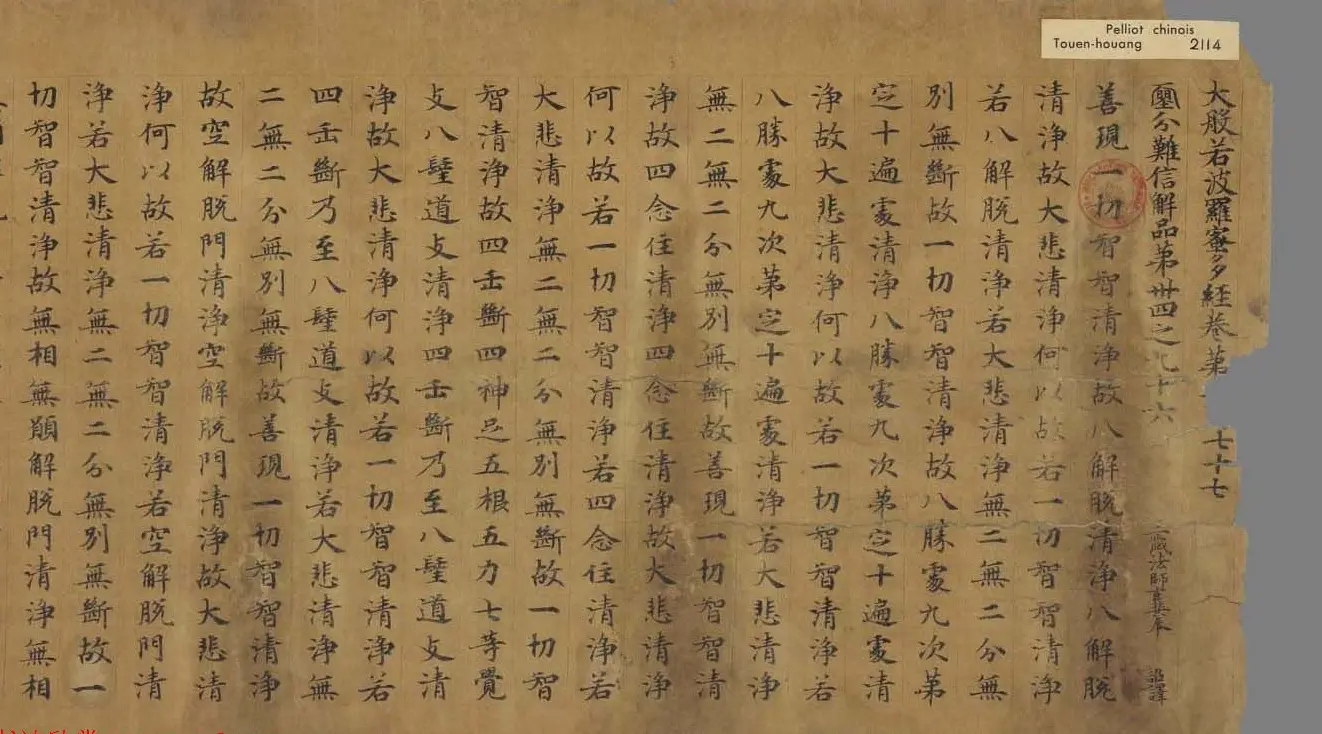 Pelliot chinois
Touen-houang 2114
大般若波羅蜜多経卷第 七十七
分難信解品第卅四之九十六 三藏法師玄奘奉 詔譯
善現一切智智清浄故八解脱清浄八解脱
清浄故大悲清浄何以故若一切智智清浄
若八解脱清浄若大悲清浄無二無二分無
別無斷故一切智智清浄故八勝處九次第
定十遍處清浄八勝處九次第定十遍處清
浄故大悲清浄何以故若一切智智清浄若
八勝處九次第定十遍處清浄若大悲清浄
無二無二分無別無斷故善現一切智智清
浄故四念住清浄四念住清浄故大悲清浄
何以故若一切智智清浄若四念住清浄若
大悲清浄無二無二分無別無斷故一切智
智清浄故四正斷四神足五根五力七等覺
支八聖道支清浄四正斷乃至八聖道支清
浄故大悲清浄何以故若一切智智清浄若
四正斷乃至八聖道支清浄若大悲清浄無
二無二分無別無斷故善現一切智智清浄
故空解脱門清浄空解脱門清浄故大悲清
浄何以故若一切智智清浄若空解脱門清
浄若大悲清浄無二無二分無別無斷故一
切智智清浄故無相無願解脱門清浄無相